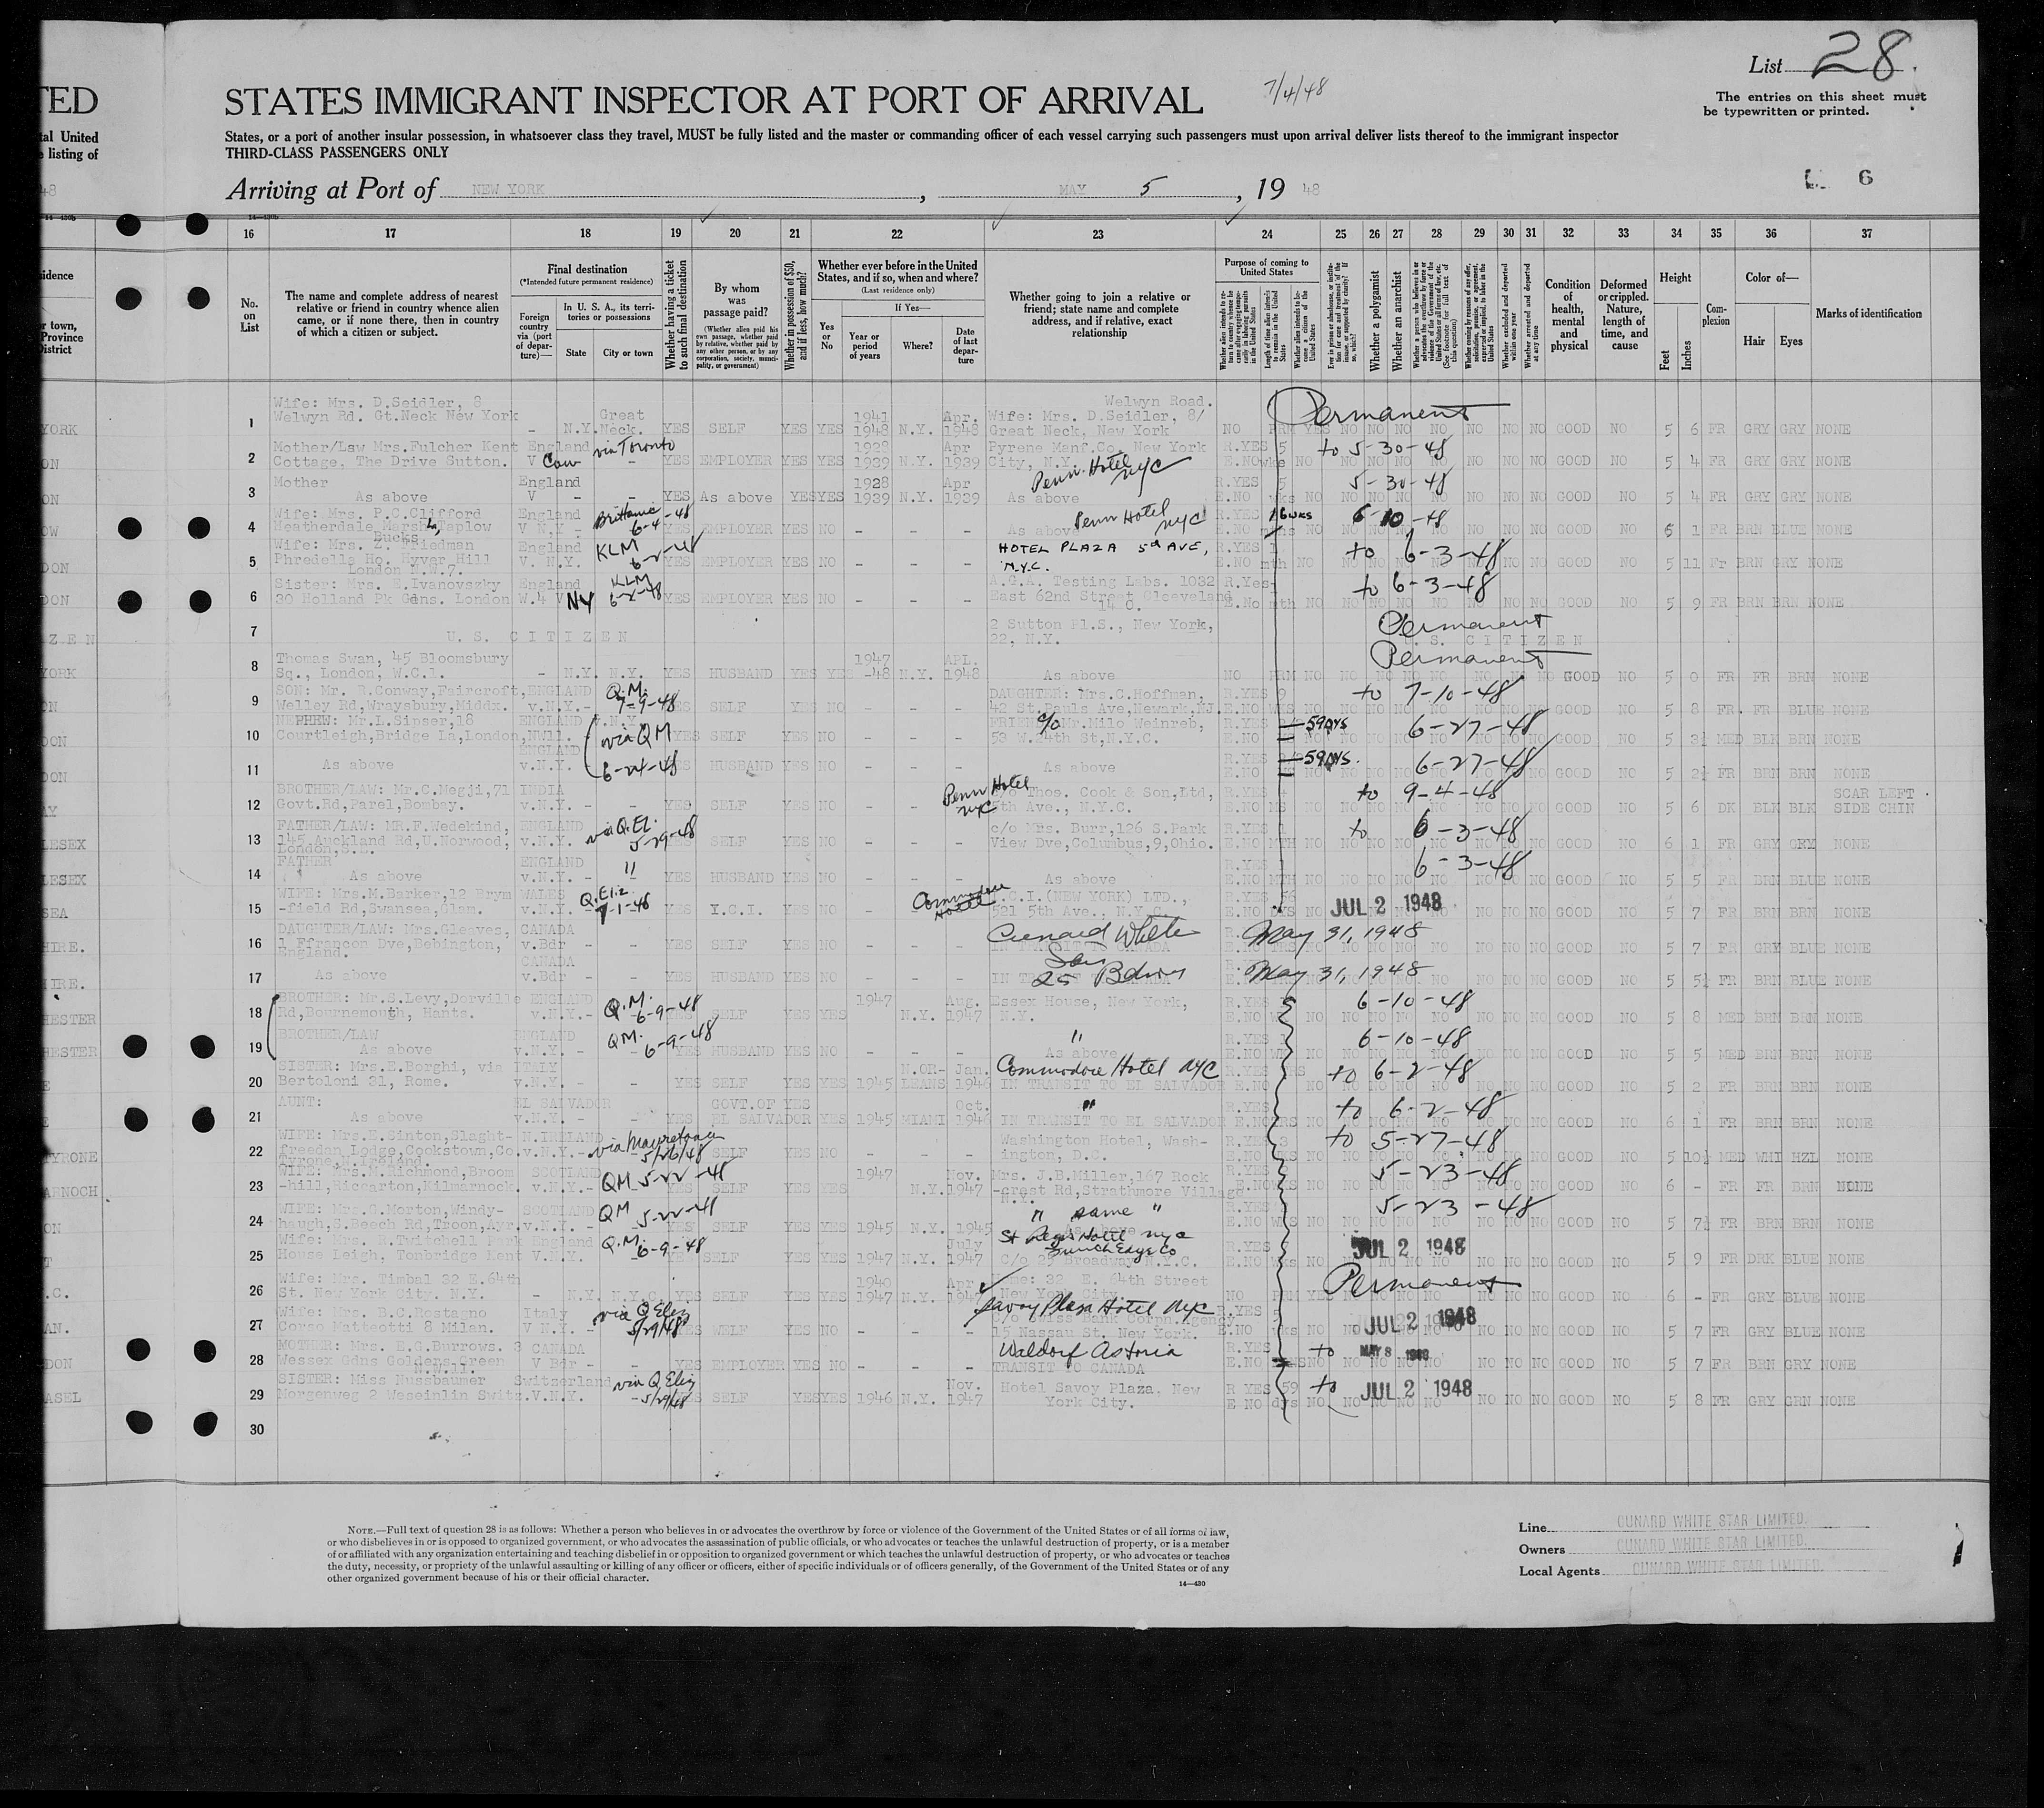 List 28.
The entries on this sheet must
be typewritten or printed.
TED
STATES IMMIGRANT INSPECTOR AT PORT OF ARRIVAL
7/4/48
tal United
listing of
States, or a port of another insular possession, in whatsoever class they travel, MUST be fully listed and the master or commanding officer of each vessel carrying such passengers must upon arrival deliver lists thereof to the immigrant inspector
THIRD-CLASS PASSENGERS ONLY
Arriving at Port of NEW YORK, MAY 5, 19 48
6
16 17 18 19 20 21 22 23 24 25 26 27 28 29 30 31 32 33 34 35 36 37
No. on List
The name and complete address of nearest relative or friend in country whence alien came, or if none there, then in country of which a citizen or subject.
Final destination
(*Intended future permanent residence)
Foreign country via (port of departure)—
In U. S. A., its territories or possessions
State
City or town
Whether having a ticket to such final destination
By whom was passage paid?
(Whether alien paid his own passage, whether paid by relative, whether paid by any other person, or by any corporation, society, municipality, or government)
Whether in possession of $50, and if less, how much?
Whether ever before in the United States, and if so, when and where?
(Last residence only)
Yes or No
If Yes—
Year or period of years
Where?
Date of last departure
Whether going to join a relative or friend; state name and complete address, and if relative, exact relationship
Purpose of coming to United States
Whether a polygamist
Whether an anarchist
Condition of health, mental and physical
Deformed or crippled. Nature, length of time, and cause
Height
Feet
Inches
Complexion
Color of—
Hair
Eyes
Marks of identification
1 Wife: Mrs. D.Seidler, 8 Welwyn Rd. Gt.Neck New York - N.Y. Great Neck. YES SELF YES YES 1941 1948 N.Y. Apr. 1948 Wife: Mrs. D.Seidler, 8/ Welwyn Road. Great Neck, New York NO Permanent GOOD NO 5 6 FR GRY GRY NONE
2 Mother/Law Mrs.Fulcher Kent Cottage, The Drive Sutton. England V Can via Toronto - YES EMPLOYER YES YES 1928 1939 N.Y. Apr 1939 Pyrene Manf.Co. New York City, N.Y. Penn. Hotel NYC R.YES 5 E.NO wks NO to 5-30-48 GOOD NO 5 4 FR GRY GRY NONE
3 Mother As above England V - - YES As above YES YES 1928 1939 N.Y. Apr 1939 As above R.YES 5 E.NO wks NO 5-30-48 GOOD NO 5 4 FR GRY GRY NONE
4 Wife: Mrs. P.C.Clifford Heatherdale Marsh La, Taplow Bucks England V N.Y - Brittanic 6-4-48 YES EMPLOYER YES NO - - - As above Penn Hotel NYC R.YES 6 wks E.NO 6-10-48 GOOD NO 6 1 FR BRN BLUE NONE
5 Wife: Mrs. Z. Friedman Phredella Ho. Hyver Hill London N.W.7. England V. N.Y. KLM 6-2-48 YES EMPLOYER YES NO - - - HOTEL PLAZA 5th AVE, N.Y.C. R.YES 1 E.NO mth NO to 6-3-48 GOOD NO 5 11 Fr BRN GRY NONE
6 Sister: Mrs. E.Ivanovszky 30 Holland Pk Gdns. London W.4 England V NY KLM 6-2-48 YES EMPLOYER YES NO - - - A.G.A. Testing Labs. 1032 East 62nd Street Cleaveland 14 O. R.Yes E.No mth NO to 6-3-48 GOOD NO 5 9 FR BRN BRN NONE
7 U. S. CITIZEN 2 Sutton Pl.S., New York, 22, N.Y. Permanent U. S. CITIZEN
8 Thomas Swan, 45 Bloomsbury Sq., London, W.C.1. - N.Y. N.Y. YES HUSBAND YES YES 1947 -48 N.Y. APL. 1948 As above NO PRM NO Permanent GOOD NO 5 0 FR FR BRN NONE
9 SON: Mr. R.Conway,Faircroft, Welley Rd,Wraysbury,Middx. ENGLAND v.N.Y.- Q.M. 7-9-48 YES SELF YES NO - - - DAUGHTER: Mrs.C.Hoffman, 42 St.Pauls Ave,Newark,NJ. R.YES 9 E.NO WKS NO to 7-10-48 GOOD NO 5 8 FR. FR BLUE NONE
10 NEPHEW: Mr.L.Sipser,18 Courtleigh,Bridge La,London,NW11. ENGLAND v.N.Y. via QM 6-24-48 YES SELF YES NO - - - FRIEND: c/o Mr.Milo Weinreb, 53 W.24th St,N.Y.C. R.YES E.NO 59 DAYS 6-27-48 GOOD NO 5 3½ MED BLK BRN NONE
11 As above ENGLAND v.N.Y. YES HUSBAND YES NO - - - As above R.YES E.NO 59 DAYS. 6-27-48 GOOD NO 5 2½ FR BRN BRN NONE
12 BROTHER/LAW: Mr.C.Negji,71 Govt.Rd,Parel,Bombay. INDIA v.N.Y. - - YES SELF YES NO - - Penn Hotel NYC c/o Thos. Cook & Son,Ltd, 5th Ave., N.Y.C. R.YES 4 E.NO MS NO to 9-4-48 GOOD NO 5 6 DK BLK BLK SCAR LEFT SIDE CHIN
13 FATHER/LAW: MR.F.Wedekind, 145 Auckland Rd,U.Norwood, London,S.E. ENGLAND v.N.Y. via Q.El. 5-29-48 YES SELF YES NO - - - c/o Mrs. Burr,126 S.Park View Dve,Columbus,9,Ohio. R.YES 1 E.NO MTH NO to 6-3-48 GOOD NO 6 1 FR GRY GRY NONE
14 FATHER As above ENGLAND v.N.Y. - " YES HUSBAND YES NO - - - As above R.YES 1 E.NO MTH NO 6-3-48 GOOD NO 5 5 FR BRN BLUE NONE
15 WIFE: Mrs.M.Barker,12 Brym -field Rd,Swansea,Glam. WALES v.N.Y. Q.Eliz 7-1-48 YES I.C.I. YES NO - - - Commodore Hotel I.C.I.(NEW YORK) LTD., 521 5th Ave., N.Y. R.YES 56 E.NO DYS NO JUL 2 1948 GOOD NO 5 7 FR BRN BRN NONE
16 DAUGHTER/LAW: Mrs.Gleaves, 1 Ffrancon Dve,Bebington, England. CANADA v.Bdr - - YES SELF YES NO - - - Cunard White Star 25 Bdwy May 31, 1948 GOOD NO 5 7 FR GRY BLUE NONE
17 As above CANADA v.Bdr - - YES HUSBAND YES NO - - - May 31, 1948 GOOD NO 5 5½ FR BRN BLUE NONE
18 BROTHER: Mr.S.Levy,Dorville Rd,Bournemouth, Hants. ENGLAND v.N.Y.- Q.M. 6-9-48 SELF YES YES 1947 N.Y. Aug. 1947 Essex House, New York, N.Y. R.YES 5 E.NO 6-10-48 GOOD NO 5 8 MED BRN BRN NONE
19 BROTHER/LAW As above ENGLAND v.N.Y. - QM. 6-9-48 YES HUSBAND YES NO - - - " As above R.YES E.NO 6-10-48 GOOD NO 5 5 MED BRN BRN NONE
20 SISTER: Mrs.E.Borghi, via Bertoloni 31, Rome. ITALY v.N.Y. - - YES SELF YES YES 1945 N.OR-LEANS Jan. 1946 Commodore Hotel NYC IN TRANSIT TO EL SALVADOR R.YES E.NO to 6-2-48 GOOD NO 5 2 FR BRN BRN NONE
21 AUNT: As above EL SALVADOR v.N.Y. - - YES GOVT.OF EL SALVADOR YES YES 1945 MIAMI Oct. 1946 " IN TRANSIT TO EL SALVADOR R.YES E.NO to 6-2-48 GOOD NO 6 1 FR BRN BRN NONE
22 WIFE: Mrs.E.Sinton,Slaght-freedan Lodge,Cookstown,Co. Tyrone, N.Ireland. N.IRELAND v.N.Y.- via Mauretania 5/26/48 SELF YES NO - - - Washington Hotel, Wash-ington, D.C. R.YES 3 E.NO to 5-27-48 GOOD NO 5 10½ MED WHI HZL NONE
23 WIFE: Mrs.M.Richmond,Broom -hill,Riccarton,Kilmarnock. SCOTLAND v.N.Y.- QM 5-22-48 YES SELF YES YES 1947 N.Y. Nov. 1947 Mrs. J.B.Miller,167 Rock -crest Rd,Strathmore Village N.Y. R.YES E.NO 5-23-48 GOOD NO 6 - FR FR BRN NONE
24 WIFE: Mrs.G.Morton,Windy-haugh,S.Beech Rd,Troon,Ayr. SCOTLAND v.N.Y.- QM 5-22-48 YES SELF YES YES 1945 N.Y. 1945 " same " As above R.YES E.NO WKS NO 5-23-48 GOOD NO 5 7½ FR BRN BRN NONE
25 Wife: Mrs. R.Twitchell Park House Leigh, Tonbridge Kent England V.N.Y. Q.M. 6-9-48 YES SELF YES YES 1947 N.Y. July 1947 St Regis Hotel NYC C/o 25 Broadway N.Y.C. R.YES E.NO wks NO JUL 2 1948 GOOD NO 5 9 FR DRK BLUE NONE
26 Wife: Mrs. Timbal 32 E.64th St. New York City. N.Y. - N.Y. N.Y.C. YES SELF YES YES 1940 1947 N.Y. Apr. 1947 Home: 32 E. 64th Street New York City. NO PRM YES Permanent GOOD NO 6 - FR GRY BLUE NONE
27 Wife: Mrs. B.C.Rostagno Corso Matteotti 8 Milan. Italy V N.Y. - via Q Eliz 5/29/48 YES WELF YES NO - - - Savoy Plaza Hotel NYC C/o Swiss Bank Corpn.Agency 15 Nassau St. New York. R.YES E.NO wks NO JUL 2 1948 GOOD NO 5 7 FR GRY BLUE NONE
28 MOTHER: Mrs. E.G.Burrows. 3 Wessex Gdns Golders Green N.W.11. CANADA V Bdr - - YES EMPLOYER YES NO - - - Waldorf Astoria TRANSIT TO CANADA R.YES E.NO to MAY 8 1948 GOOD NO 5 7 FR BRN GRY NONE
29 SISTER: Miss Nussbaumer Morgenweg 2 Weseinlin Switz. Switzerland V.N.Y. via Q Eliz 5/29/48 YES SELF YES YES 1946 N.Y. Nov. 1947 Hotel Savoy Plaza, New York City. R YES 59 E NO dys NO to JUL 2 1948 GOOD NO 5 8 FR GRY GRN NONE
30
NOTE.—Full text of question 28 is as follows: Whether a person who believes in or advocates the overthrow by force or violence of the Government of the United States or of all forms of law,
or who disbelieves in or is opposed to organized government, or who advocates the assassination of public officials, or who advocates or teaches the unlawful destruction of property, or is a member
of or affiliated with any organization entertaining and teaching disbelief in or opposition to organized government or which teaches the unlawful destruction of property, or who advocates or teaches
the duty, necessity, or propriety of the unlawful assaulting or killing of any officer or officers, either of specific individuals or of officers generally, of the Government of the United States or of any
other organized government because of his or their official character.
14—430
Line CUNARD WHITE STAR LIMITED.
Owners CUNARD WHITE STAR LIMITED.
Local Agents CUNARD WHITE STAR LIMITED.